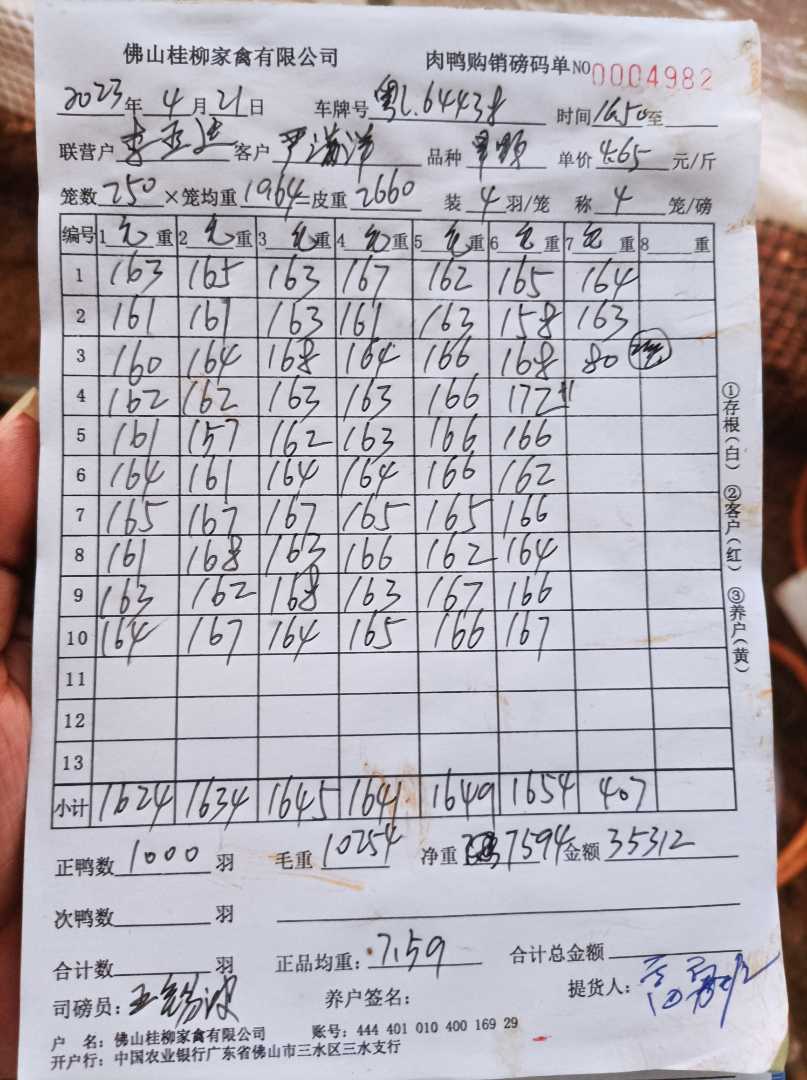 佛山桂柳家禽有限公司 肉鸭购销磅码单 NO 0004982
2023年4月21日 车牌号 粤L.6443 时间16.50至
联营户 客户 尹海洋 品种 单价 4.65 元/斤
笼数250×笼均重 =皮重2660 装4羽/笼 称4笼/磅
编号 1毛重 2毛重 3毛重 4毛重 5毛重 6毛重 7毛重 8重
1 163 165 163 167 162 165 164
2 161 161 163 161 163 158 163
3 160 164 168 164 166 168 80
4 162 162 163 163 166 172
5 161 157 162 163 166 166
6 164 161 164 164 166 162
7 165 167 167 165 165 166
8 161 168 163 166 162 164
9 163 162 168 163 167 166
10 164 167 164 165 166 167
11
12
13
小计 1624 1634 1645 1641 1649 1654 407
①存根(白) ②客户(红) ③养户(黄)
正鸭数1000羽 毛重10254 净重7594 金额35312
次鸭数 羽
合计数 羽 正品均重：7.59 合计总金额
司磅员： 养户签名： 提货人：
户 名：佛山桂柳家禽有限公司 账号：444 401 010 400 169 29
开户行：中国农业银行广东省佛山市三水区三水支行